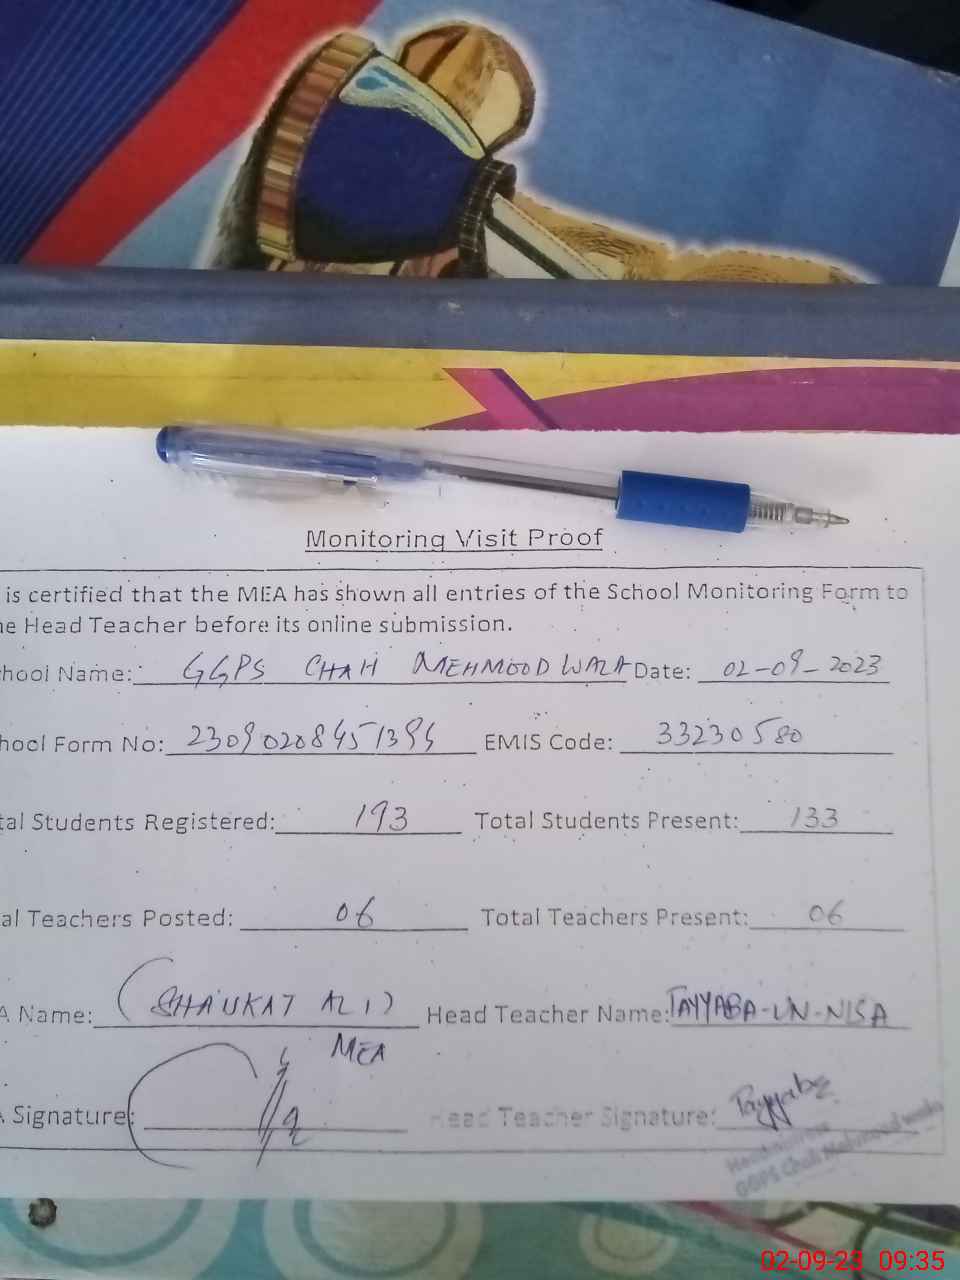 Monitoring Visit Proof
is certified that the MEA has shown all entries of the School Monitoring Form to
he Head Teacher before its online submission.
hool Name: GGPS CHAH MEHMOOD WALA Date: 02-09-2023
hool Form No: EMIS Code: 33230580
tal Students Registered: 193 Total Students Present: 133
al Teachers Posted: 06 Total Teachers Present: 06
A Name: (SHAUKAT ALI) Head Teacher Name: TAYYABA-UN-NISA
MEA
A Signature: Head Teacher Signature: Tayyaba
Headmistress
GGPS Chah Mehmood Wala
02-09-23 09:35